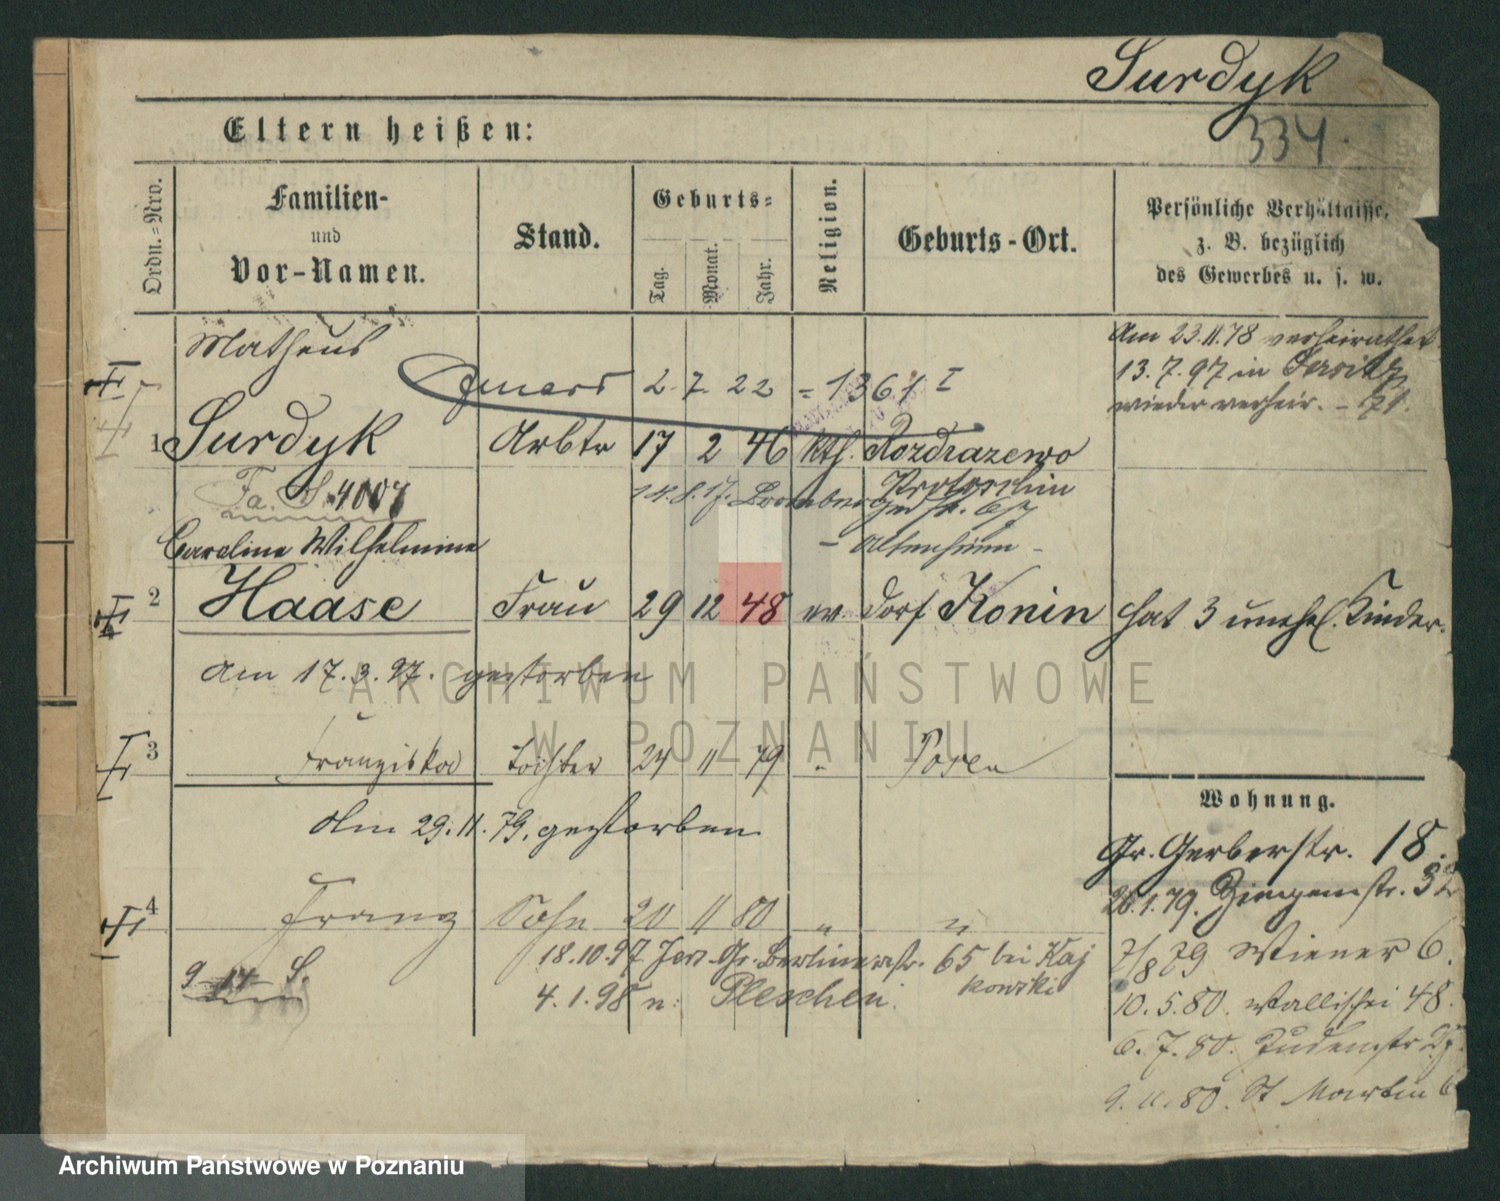 Surdyk
334.
Eltern heißen:
Ordn.-Nro.
Familien-
und
Vor-Namen.
Stand.
Geburts-
Tag.
Monat.
Jahr.
Religion.
Geburts-Ort.
Persönliche Verhältnisse,
z. B. bezüglich
des Gewerbes u. s. w.
Matheus
Am 23.11.78 verheirathet
13.7.97 in Jersitz
wieder verheir.
2. 7. 22 = 1361 I
1 Surdyk Arbtr 17 2 46 kth. Rozdrazewo
Krotoschin
Fa. S. 4007
Caroline Wilhelmine
- Altenheim -
2 Haase Frau 29 12 48 ev. Dorf Konin hat 3 unehel. Kinder.
Am 17.3.97. gestorben
3 Franziska Tochter 24 11 79 " Posen
Am 29.11.79. gestorben
Wohnung.
Gr. Gerberstr. 18.
26.1.79. Ziegenstr.
4 Franz Sohn 20 11 80 " "
7/8 79 Wiener 6.
18.10.97 Jers. Gr. Berlinerstr. 65 bei Kaj
kowski
4.1.98 n. Pleschen.
10.5.80. Wallischei 48.
6.7.80. Judenstr
9.11.80. St Martin 6
ARCHIWUM PAŃSTWOWE
W POZNANIU
Archiwum Państwowe w Poznaniu